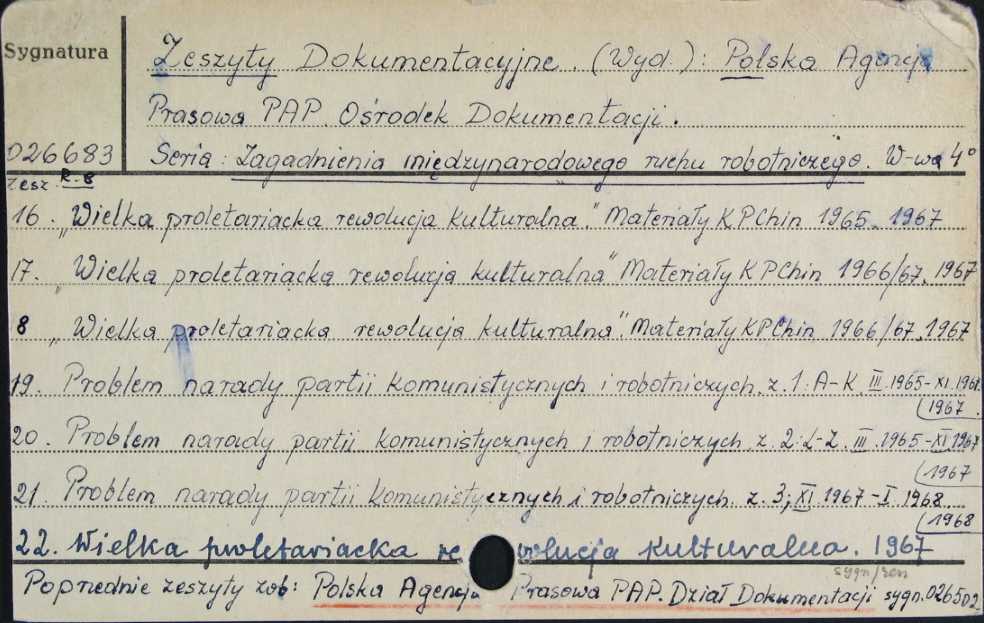 Sygnatura
Zeszyty Dokumentacyjne. (Wyd.): Polska Agencja
Prasowa PAP. Ośrodek Dokumentacji.
026683 Seria: Zagadnienia międzynarodowego ruchu robotniczego. W-wa 4°
Zesz. R-8
16. „Wielka proletariacka rewolucja kulturalna." Materiały KPChin 1965. 1967
17. „Wielka proletariacka rewolucja kulturalna" Materiały KPChin 1966/67. 1967
8 „Wielka proletariacka rewolucja kulturalna". Materiały KPChin 1966/67. 1967
19. Problem narady partii komunistycznych i robotniczych. z. 1: A-K. III.1965-XI.1967
(1967
20. Problem narady partii komunistycznych i robotniczych. z. 2: L-Z. III.1965-XI.1967
(1967
21. Problem narady partii komunistycznych i robotniczych. z. 3; XI 1967-I. 1968
(1968
22. Wielka proletariacka rewolucja kulturalna. 1967
Poprzednie zeszyty zob: Polska Agencja Prasowa PAP. Dział Dokumentacji sygn. 026502